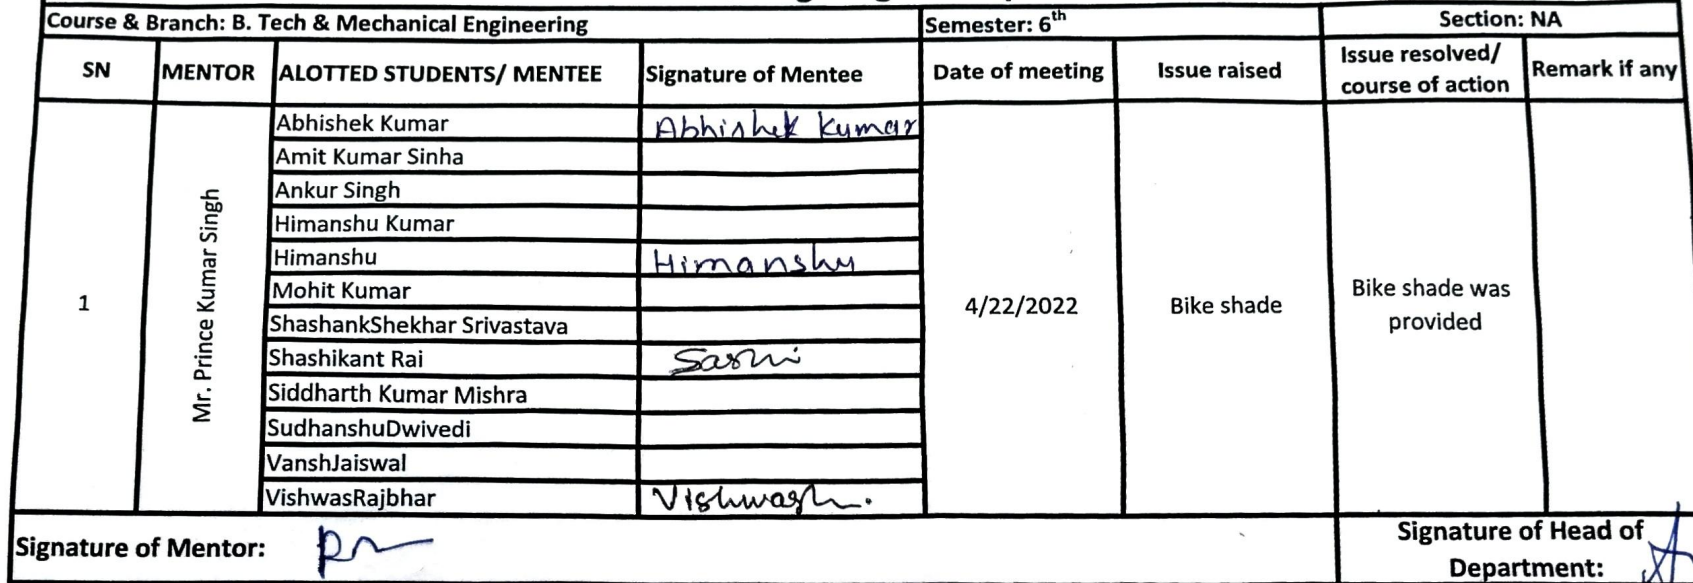 Course & Branch: B. Tech & Mechanical Engineering Semester: 6th Section: NA
SN MENTOR ALOTTED STUDENTS/ MENTEE Signature of Mentee Date of meeting Issue raised Issue resolved/ course of action Remark if any
1 Mr. Prince Kumar Singh
Abhishek Kumar Abhishek Kumar
Amit Kumar Sinha
Ankur Singh
Himanshu Kumar
Himanshu Himanshu
Mohit Kumar
ShashankShekhar Srivastava
Shashikant Rai Sashi
Siddharth Kumar Mishra
SudhanshuDwivedi
VanshJaiswal
VishwasRajbhar
4/22/2022 Bike shade Bike shade was provided
Signature of Mentor:
Signature of Head of
Department: